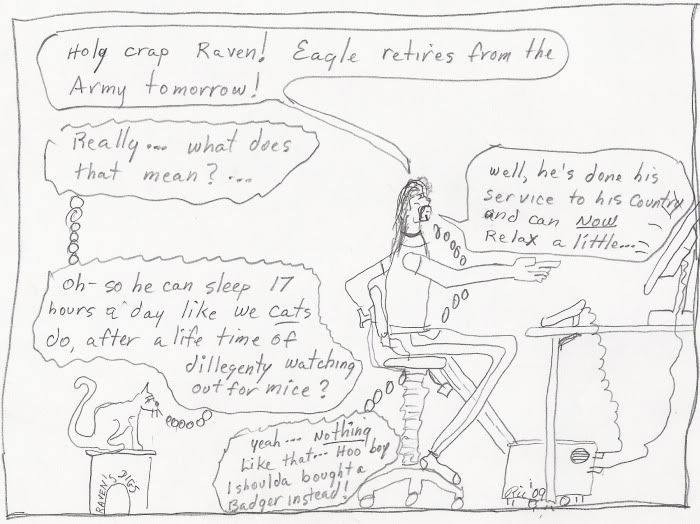 Holy crap Raven! Eagle retires from the
Army tomorrow!
Really... what does
that mean?...
well, he's done his
service to his Country
and can Now
Relax a little...
Oh- so he can sleep 17
hours a day like we cats
do, after a life time of
dillegenty watching
out for mice?
yeah... Nothing
Like that... Hoo boy
I shoulda bought a
Badger instead!
RAVEN'S DIGS
Ric '09